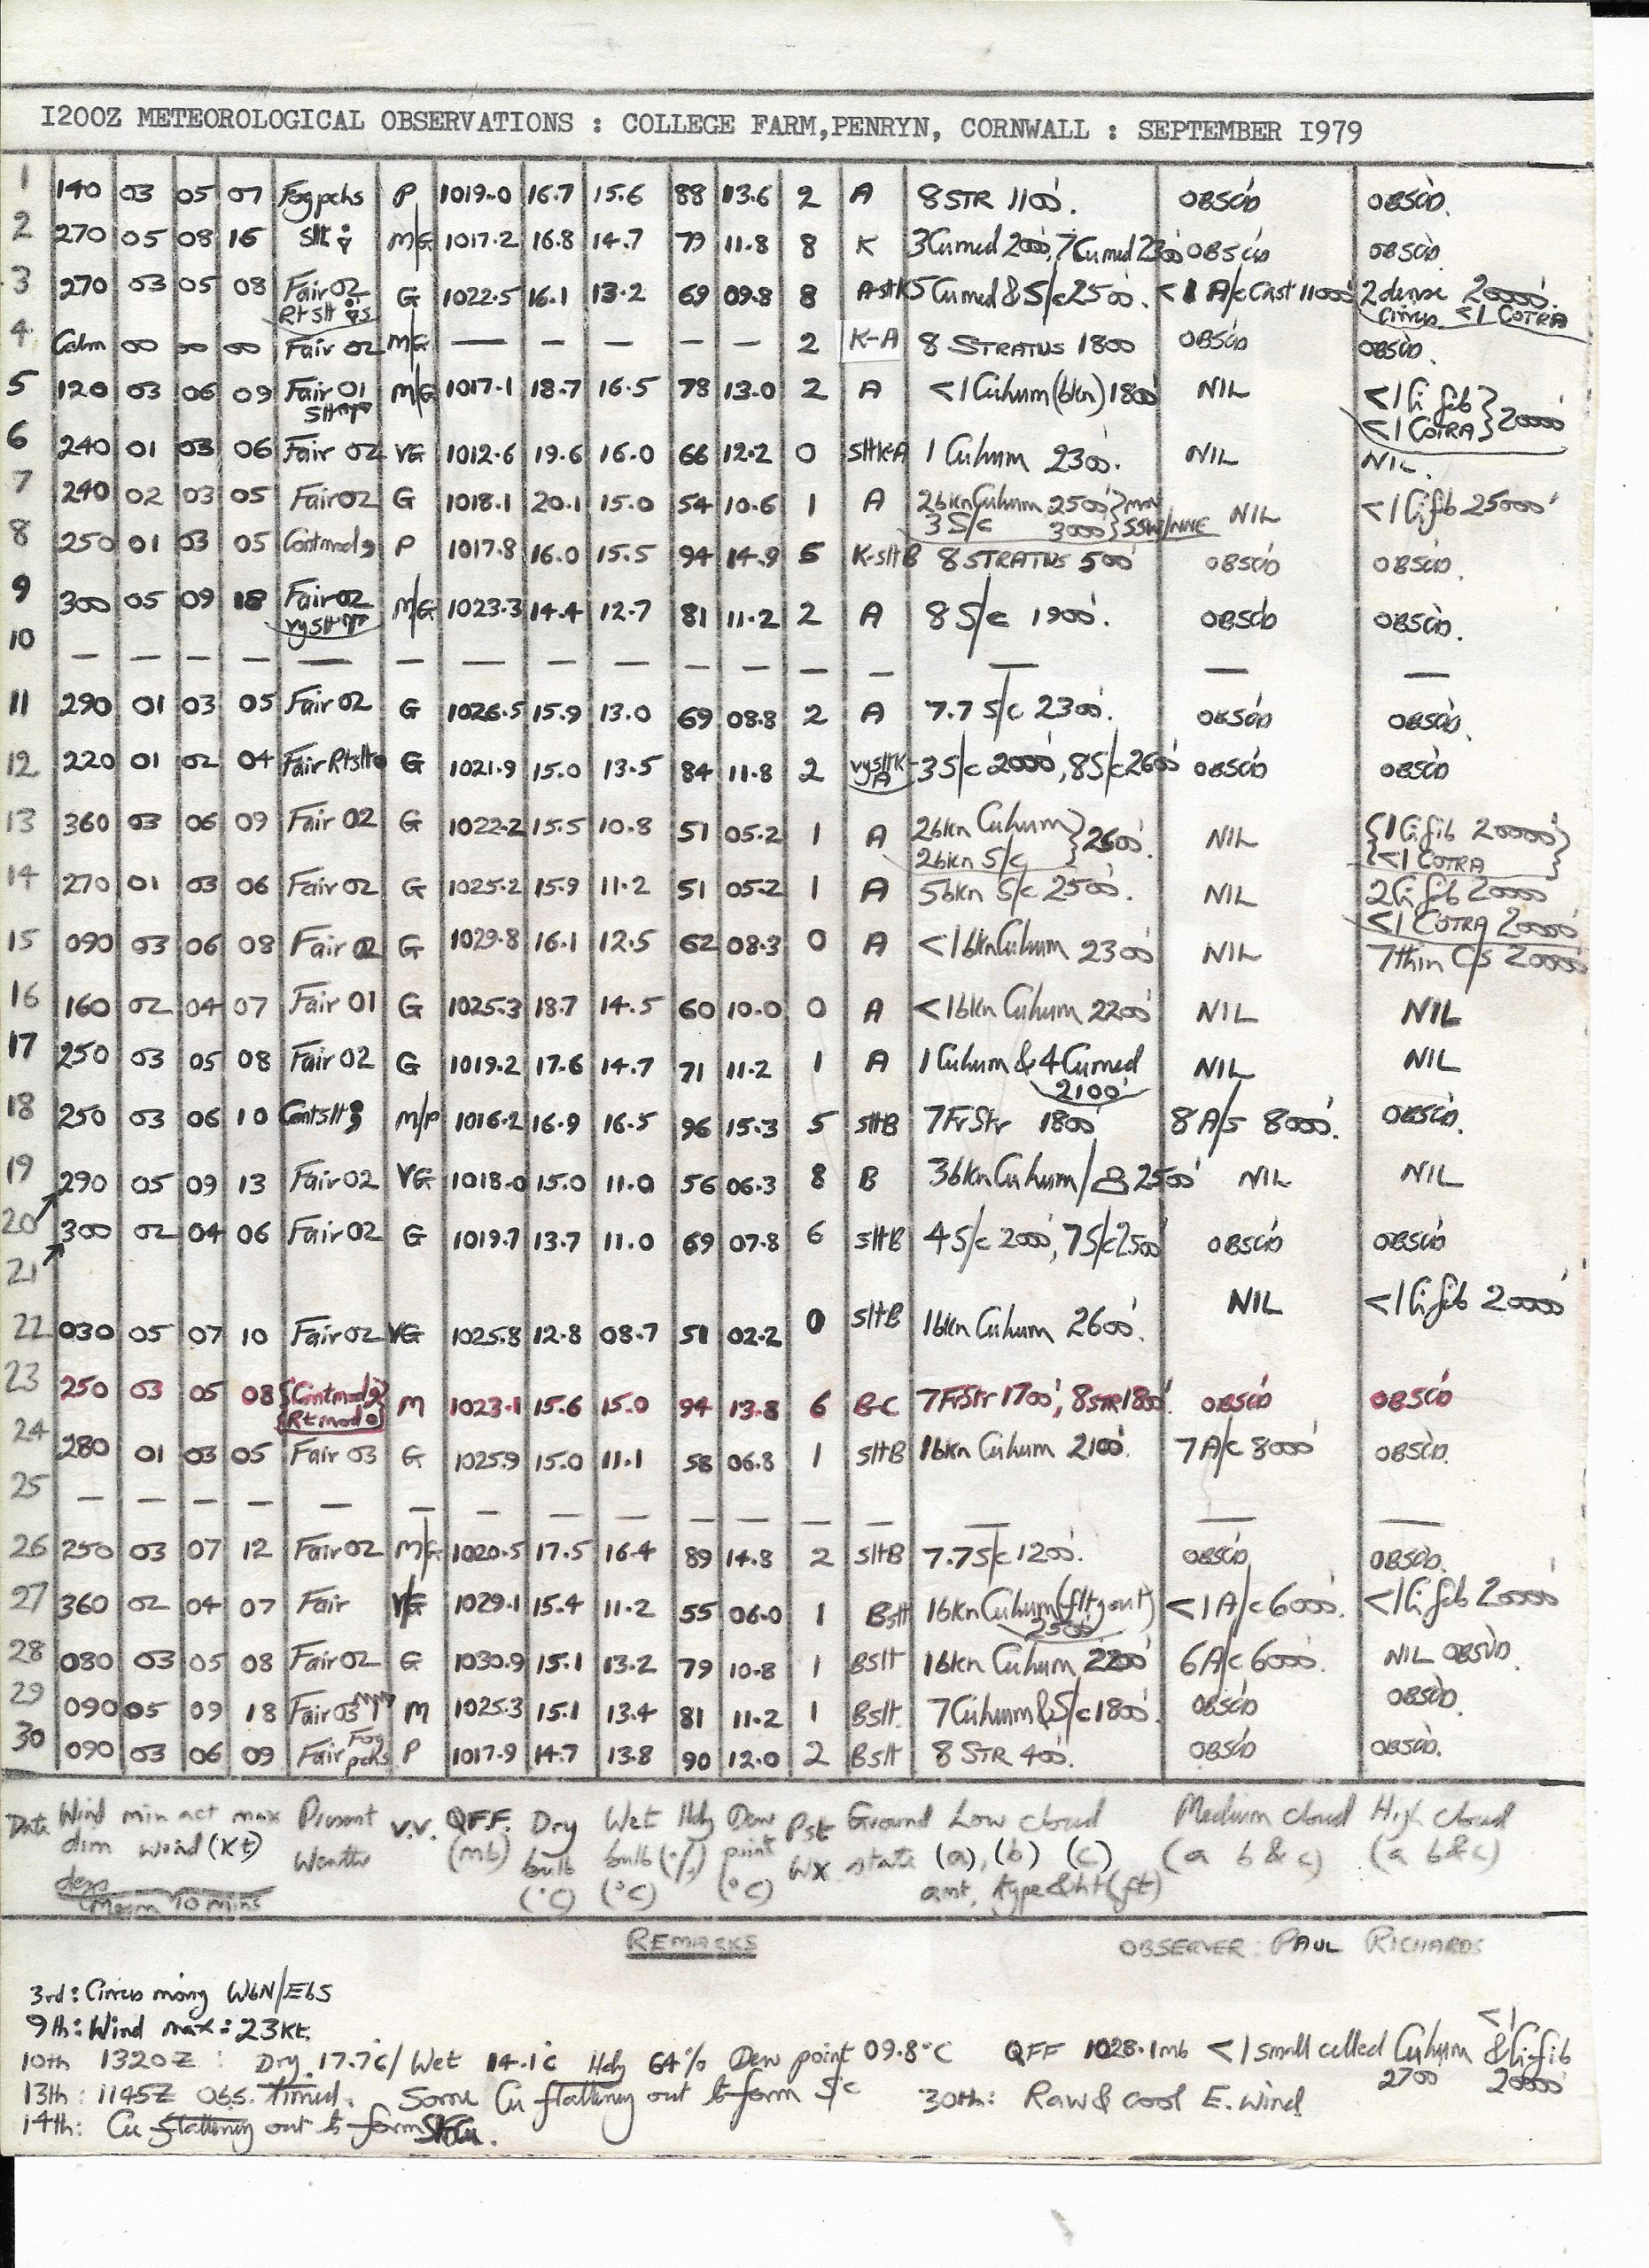 1200Z METEOROLOGICAL OBSERVATIONS : COLLEGE FARM,PENRYN, CORNWALL : SEPTEMBER 1979
1 140 03 05 07 Fog pchs P 1019.0 16.7 15.6 88 13.6 2 A 8 STR 1100'. OBSC'D OBSC'D.
2 270 05 08 16 Slt M/G 1017.2 16.8 14.7 79 11.8 8 K 3Cumed 2000', 7Cumed 2300' OBSC'D OBSC'D.
3 270 03 05 08 Fair 02 G 1022.5 16.1 13.2 69 09.8 8 A-sltK 5 Cumed & S/c 2500'. <1 A/c Cast 11000' 2 dense 20000'.
Rt slt cirrus <1 COTRA
4 Calm 00 00 00 Fair 02 M/G — — — — — 2 K-A 8 STRATUS 1800 OBSC'D OBSC'D.
5 120 03 06 09 Fair 01 M/G 1017.1 18.7 16.5 78 13.0 2 A <1 Cuhum (bkn) 1800' NIL <1 Ci fib
<1 COTRA } 20000'
6 240 01 03 06 Fair 02 VG 1012.6 19.6 16.0 66 12.2 0 sltK-A 1 Cuhum 2300'. NIL NIL.
7 240 02 03 05 Fair 02 G 1018.1 20.1 15.0 54 10.6 1 A 2bkn Cuhum 2500' NIL <1 Ci fib 25000'
3 S/c 3000' } SSW/NNE
8 250 01 03 05 Cont mod P 1017.8 16.0 15.5 94 14.9 5 K-sltB 8 STRATUS 500' OBSC'D OBSC'D.
9 300 05 09 18 Fair 02 M/G 1023.3 14.4 12.7 81 11.2 2 A 8 S/c 1900'. OBSC'D OBSC'D.
vy slt
10 — — — — — — — — — — — — — — — —
11 290 01 03 05 Fair 02 G 1026.5 15.9 13.0 69 08.8 2 A 7.7 S/c 2300'. OBSC'D OBSC'D.
12 220 01 02 04 Fair Rt slt G 1021.9 15.0 13.5 84 11.8 2 vy sltK-A 3 S/c 2000', 8 S/c 2600' OBSC'D OBSC'D
13 360 03 06 09 Fair 02 G 1022.2 15.5 10.8 51 05.2 1 A 2bkn Cuhum } 2600'. NIL { 1 Ci fib 20000' }
2bkn S/c { <1 COTRA }
14 270 01 03 06 Fair 02 G 1025.2 15.9 11.2 51 05.2 1 A 5bkn S/c 2500'. NIL 2 Ci fib 20000
<1 COTRA 20000'
15 090 03 06 08 Fair 02 G 1029.8 16.1 12.5 62 08.3 0 A <1bkn Cuhum 2300' NIL 7 thin C/s 20000'
16 160 02 04 07 Fair 01 G 1025.3 18.7 14.5 60 10.0 0 A <1bkn Cuhum 2200' NIL NIL
17 250 03 05 08 Fair 02 G 1019.2 17.6 14.7 71 11.2 1 A 1 Cuhum & 4 Cumed NIL NIL
2100'
18 250 03 06 10 Cont slt M/P 1016.2 16.9 16.5 96 15.3 5 sltB 7 Fr Str 1800' 8 A/s 8000'. OBSC'D.
19 290 05 09 13 Fair 02 VG 1018.0 15.0 11.0 56 06.3 8 B 3bkn Cuhum/ 2500' NIL NIL
20 300 02 04 06 Fair 02 G 1019.7 13.7 11.0 69 07.8 6 sltB 4 S/c 2000', 7 S/c 2500' OBSC'D OBSC'D
21
22 030 05 07 10 Fair 02 VG 1025.8 12.8 08.7 51 02.2 0 sltB 1bkn Cuhum 2600'. NIL <1 Ci fib 20000'
23 250 03 05 08 {Cont mod} M 1023.1 15.6 15.0 94 13.8 6 B-C 7 Fr Str 1700', 8 STR 1800'. OBSC'D OBSC'D
{Rt mod}
24 280 01 03 05 Fair 03 G 1025.9 15.0 11.1 58 06.8 1 sltB 1bkn Cuhum 2100'. 7 A/c 8000' OBSC'D.
25 — — — — — — — — — — — — — — —
26 250 03 07 12 Fair 02 M/G 1020.5 17.5 16.4 89 14.8 2 sltB 7.7 S/c 1200'. OBSC'D OBSC'D.
27 360 02 04 07 Fair VG 1029.1 15.4 11.2 55 06.0 1 Bslt 1bkn Cuhum (fltg out) <1 A/c 6000'. <1 Ci fib 20000'
2500'
28 080 03 05 08 Fair 02 G 1030.9 15.1 13.2 79 10.8 1 Bslt 1bkn Cuhum 2200' 6 A/c 6000'. NIL OBSV'D.
29 090 05 09 18 Fair 03 M 1025.3 15.1 13.4 81 11.2 1 Bslt. 7 Cuhum & S/c 1800'. OBSC'D OBSC'D.
30 090 03 06 09 Fair Fog pchs P 1017.9 14.7 13.8 90 12.0 2 Bslt 8 STR 400'. OBSC'D OBSC'D.
Date Wind min act max Present V.V. Q.F.F. Dry Wet Hdy Dew Pst Ground Low cloud Medium cloud High cloud
dirn wind (Kt) Weather (mb) bulb bulb (%) point Wx state (a), (b) (c) (a b & c) (a b & c)
degs (°C) (°C) (°C) amt, type & ht (ft)
Mean 10 mins
REMARKS OBSERVER: PAUL RICHARDS
3rd: Cirrus moving WbN/EbS
9th: Wind max: 23Kt.
10th 1320Z : Dry 17.7°c/ Wet 14.1°c Hdy 64% Dew point 09.8°C QFF 1028.1mb <1 small celled Cuhum 2700 & <1 Ci fib 20000'
13th : 1145Z Obs. timed. Some Cu flatteny out to form S/c 30th: Raw & cool E. wind
14th: Cu flatteny out to form .